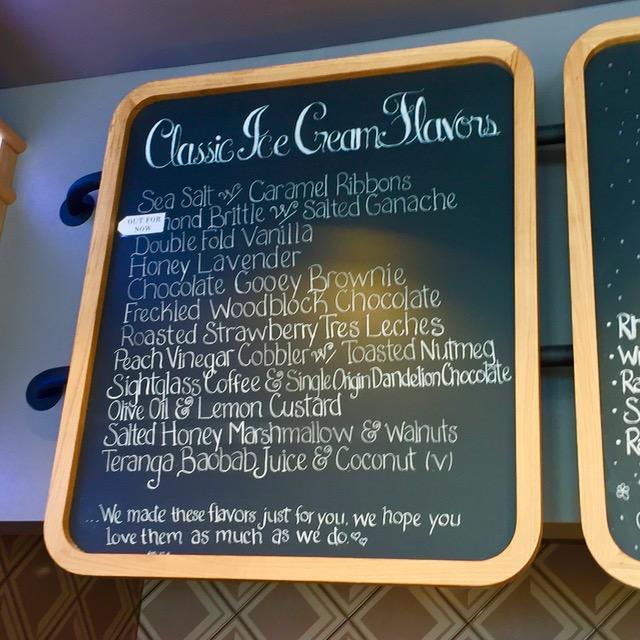 Classic Ice Cream Flavors
Sea Salt w/ Caramel Ribbons
OUT FOR
NOW
mond Brittle w/ Salted Ganache
Double Fold Vanilla
Honey Lavender
Chocolate Gooey Brownie
Freckled Woodblock Chocolate
Roasted Strawberry Tres Leches
Peach Vinegar Cobbler w/ Toasted Nutmeg
Sightglass Coffee & Single Origin Dandelion Chocolate
Olive Oil & Lemon Custard
Salted Honey Marshmallow & Walnuts
Teranga Baobab Juice & Coconut (v)
...We made these flavors just for you, we hope you
love them as much as we do.